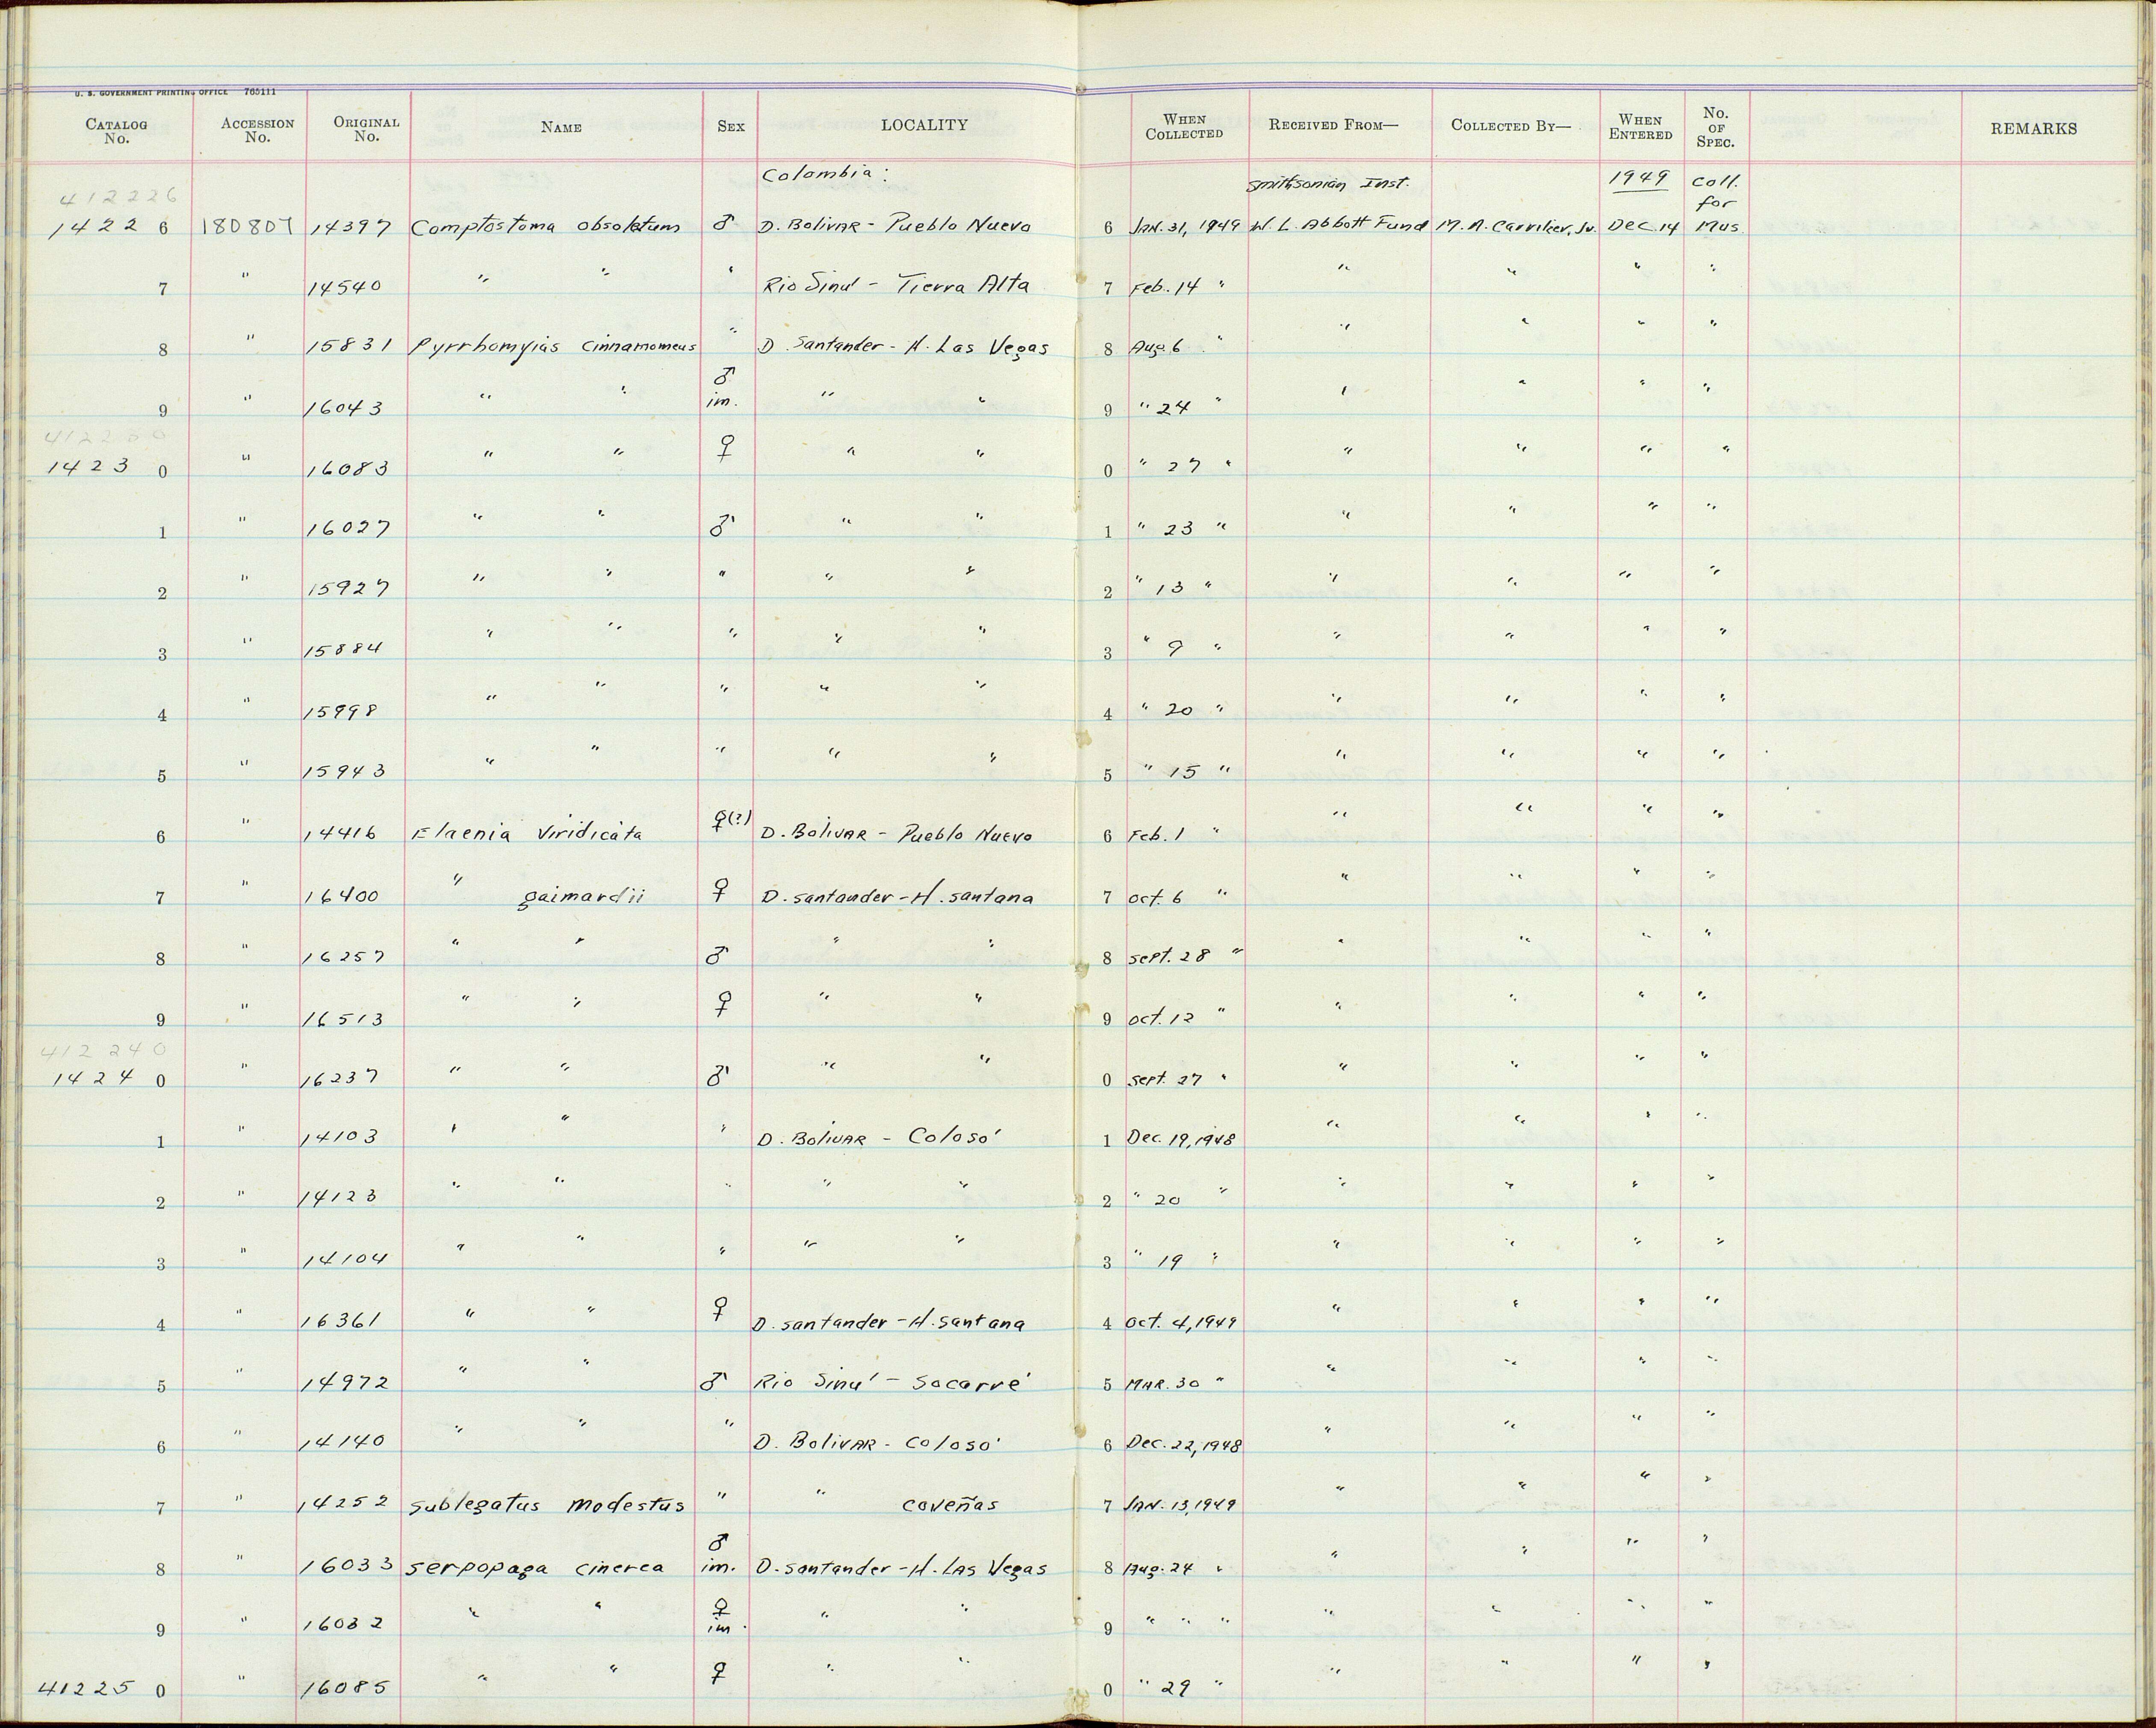 U. S. GOVERNMENT PRINTING OFFICE 765111
CATALOG No. ACCESSION No. ORIGINAL No. NAME SEX LOCALITY WHEN COLLECTED RECEIVED FROM— COLLECTED BY— WHEN ENTERED No. OF SPEC. REMARKS
Colombia:
412226 Smithsonian Inst. 1949 Coll. for
1422 6 180807 14397 Comptostoma obsoletum ♂ D. Bolivar - Pueblo Nuevo 6 Jan. 31, 1949 W. L. Abbott Fund M. A. Carriker, Jr. Dec 14 Mus.
7 " 14540 " " " Rio Sinú - Tierra Alta 7 Feb. 14 " " " " "
8 " 15831 Pyrrhomyias cinnamomeus " D. Santander - H. Las Vegas 8 Aug. 6 " " " " "
9 " 16043 " " ♂ im. " " 9 " 24 " " " " "
412230
1423 0 " 16083 " " ♀ " " 0 " 27 " " " " "
1 " 16027 " " ♂ " " 1 " 23 " " " " "
2 " 15927 " " " " " 2 " 13 " " " " "
3 " 15884 " " " " " 3 " 9 " " " " "
4 " 15998 " " " " " 4 " 20 " " " " "
5 " 15943 " " " " " 5 " 15 " " " " "
6 " 14416 Elaenia viridicata ♀(?) D. Bolivar - Pueblo Nuevo 6 Feb. 1 " " " " "
7 " 16400 " gaimardii ♀ D. Santander - H. Santana 7 Oct. 6 " " " " "
8 " 16257 " " ♂ " " 8 Sept. 28 " " " " "
9 " 16513 " " ♀ " " 9 Oct. 12 " " " " "
412240
1424 0 " 16237 " " ♂ " " 0 Sept. 27 " " " " "
1 " 14103 " " " D. Bolivar - Colosó 1 Dec. 19, 1948 " " " "
2 " 14123 " " " " " 2 " 20 " " " " "
3 " 14104 " " " " " 3 " 19 " " " " "
4 " 16361 " " ♀ D. Santander - H. Santana 4 Oct. 4, 1949 " " " "
5 " 14972 " " ♂ Rio Sinú - Socarré 5 Mar. 30 " " " " "
6 " 14140 " " " D. Bolivar - Colosó 6 Dec. 22, 1948 " " " "
7 " 14252 Sublegatus modestus " " Coveñas 7 Jan. 13, 1949 " " " "
8 " 16033 Serpopaga cinerea ♂ im. D. Santander - H. Las Vegas 8 Aug. 24 " " " " "
9 " 16032 " " ♀ im. " " 9 " " " " " " "
41225 0 " 16085 " " ♀ " " 0 " 29 " " " " "